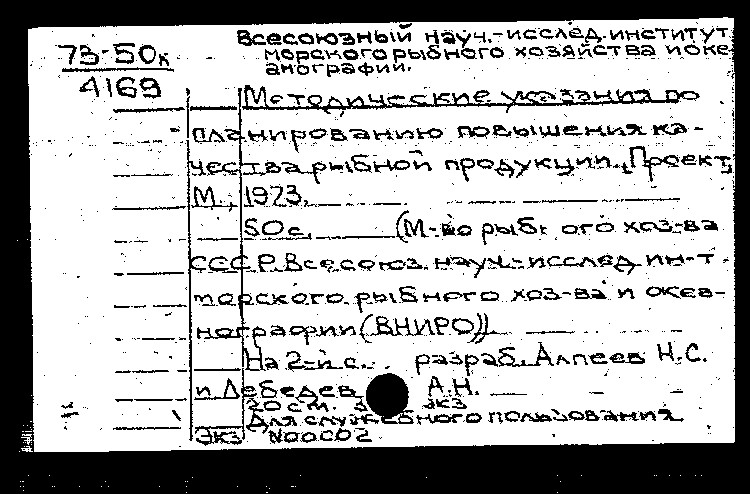 Всесоюзный науч.-исслед. институт
морского рыбного хозяйства и оке
анографии.
73-50к
4169
Методические указания по
планированию повышения ка-
чества рыбной продукции. Проект
М., 1973.
50 с. (М-во рыбн ого хоз-ва
СССР. Всесоюз. науч.-исслед. ин-т
морского рыбного хоз-ва и океа-
нографии (ВНИРО)).
На 2-й с. разраб. Алпеев Н.С.
и Лебедев А.Н.
20 см. экз
Для служебного пользования
Экз N00002